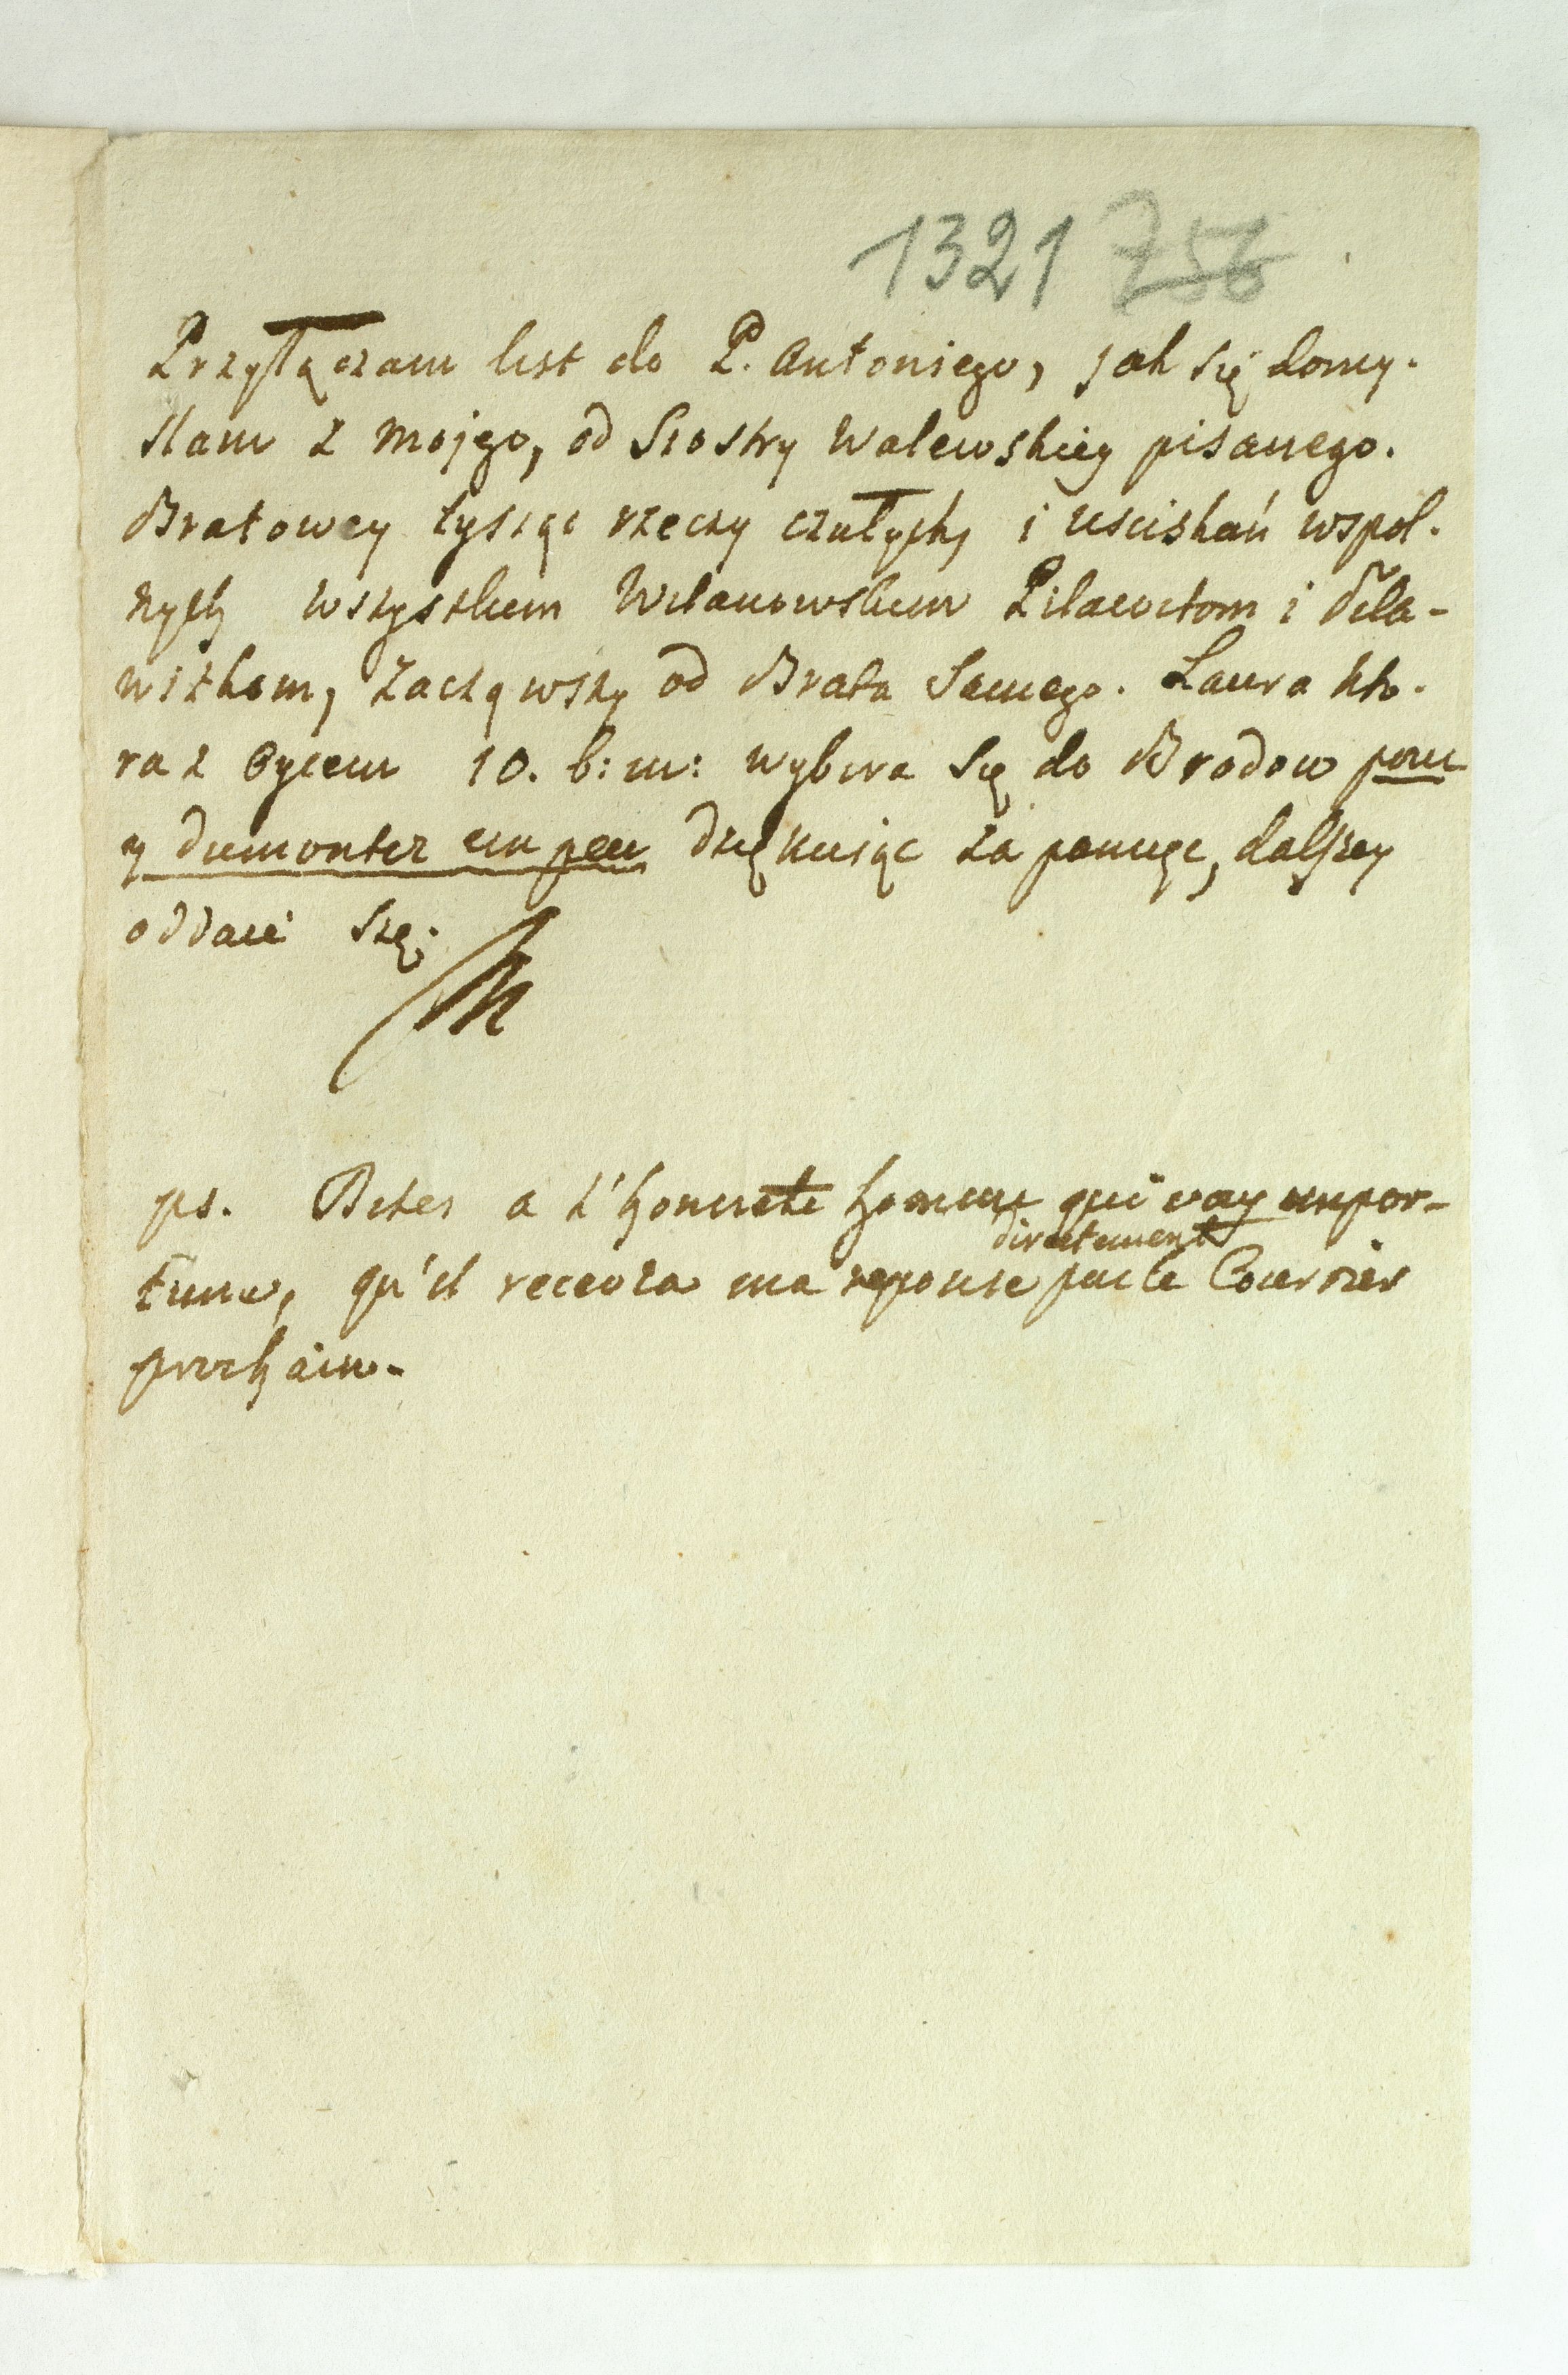 1321 756
Przyłączam list do P. Antoniego, jak się domy-
slam z mojego, od Siostry Walewskiey pisanego.
Bratowey tysiąc rzeczy czułych, i usciskań wspol-
nych wszystkim Wilanowskim Pilawitom i Pila-
witkom, zacząwszy od Brata Samego. Laura kto-
ra z Oycem 10. b: m: wybira się do Brodow pour
y dumonter un peu dziękuiąc za pomoc, dalszey
oddaie się.
ps. Dites a l'honnete homme qui
directement
tune, qu'il recevra ma reponse par le Courrier
prochain.